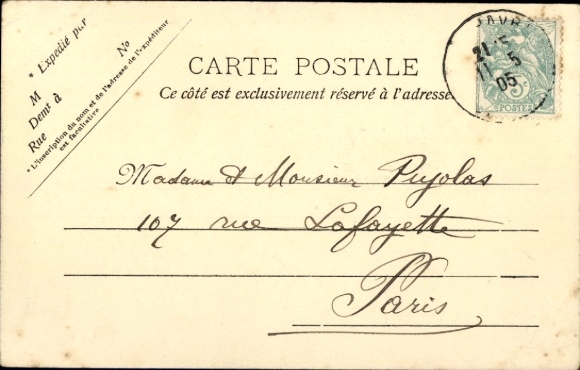 * Expédié par
M
Demt à
Rue
No
* L'inscription du nom et de l'adresse de l'expéditeur
est facultative
CARTE POSTALE
Ce côté est exclusivement réservé à l'adresse
21 - 5
11 5
05
5
POSTES
Madame et Monsieur Pujolas
107 rue Lafayette
Paris